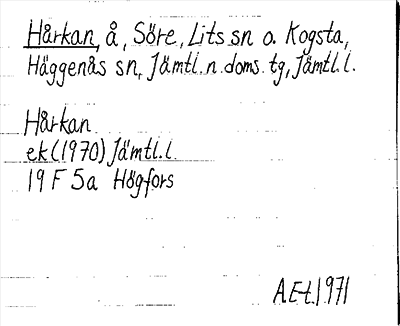 Hårkan, å, Söre, Lits sn o. Kogsta,
Häggenås sn, Jämtl. n. doms. tg, Jämtl. l.
Hårkan
ek (1970) Jämtl. l.
19 F 5a Högfors
A.E-t. 1971